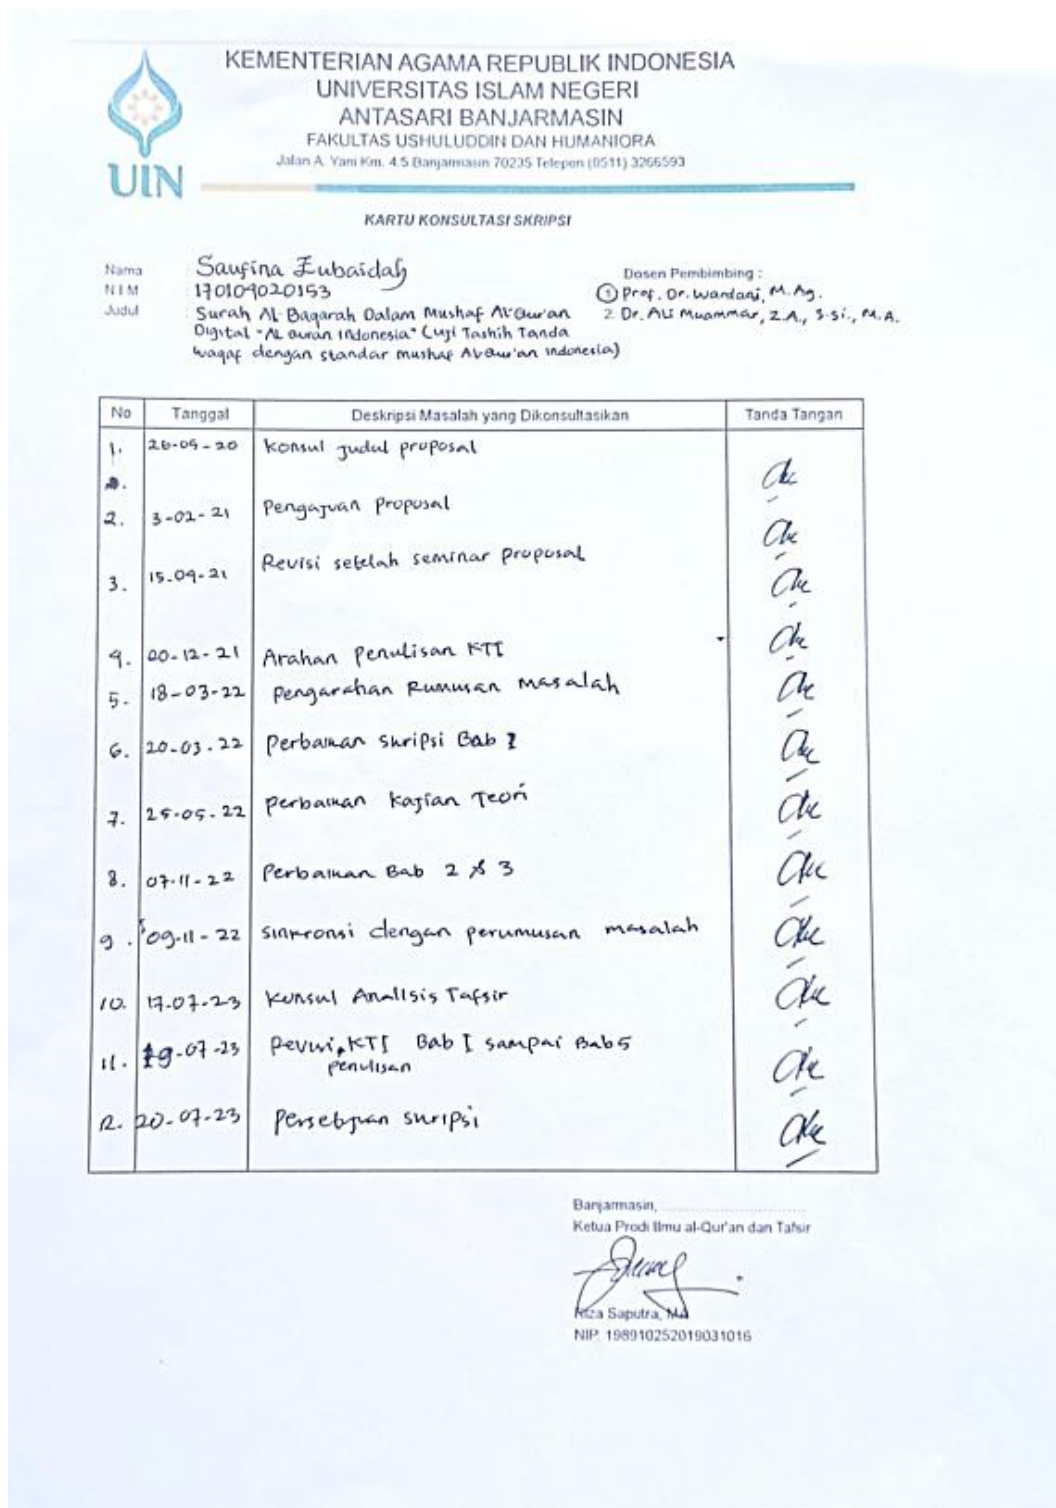 KEMENTERIAN AGAMA REPUBLIK INDONESIA
UNIVERSITAS ISLAM NEGERI
ANTASARI BANJARMASIN
FAKULTAS USHULUDDIN DAN HUMANIORA
Jalan A. Yani Km. 4.5 Banjarmasin 70235 Telepon (0511) 3266593
UIN
KARTU KONSULTASI SKRIPSI
Nama : Saufina Zubaidah
NIM : 170109020153
Judul : Surah Al-Baqarah Dalam Mushaf Al-Qur'an
Digital "Al quran Indonesia" (Uji Tashih Tanda
waqaf dengan standar mushaf Al-Qur'an indonesia)
Dosen Pembimbing :
1 Prof. Dr. Wardani, M.Ag.
2. Dr. Ali Muammar, Z.A., S.Si., M.A.
No Tanggal Deskripsi Masalah yang Dikonsultasikan Tanda Tangan
1. 26-05-20 Konsul judul proposal
2. 3-02-21 Pengajuan Proposal
3. 15-09-21 Revisi setelah seminar proposal
4. 20-12-21 Arahan Penulisan KTI
5. 18-03-22 Pengarahan Rumusan Masalah
6. 20-03-22 Perbaikan skripsi Bab 1
7. 25-05-22 Perbaikan Kajian Teori
8. 07-11-22 Perbaikan Bab 2 & 3
9. 09-11-22 sinkronsi dengan perumusan masalah
10. 17-07-23 Konsul Analisis Tafsir
11. 19-07-23 Revisi KTI Bab I sampai Bab 5
penulisan
12. 20-07-23 Persetujuan skripsi
Banjarmasin,
Ketua Prodi Ilmu al-Qur'an dan Tafsir
Riza Saputra, MA
NIP. 198910252019031016